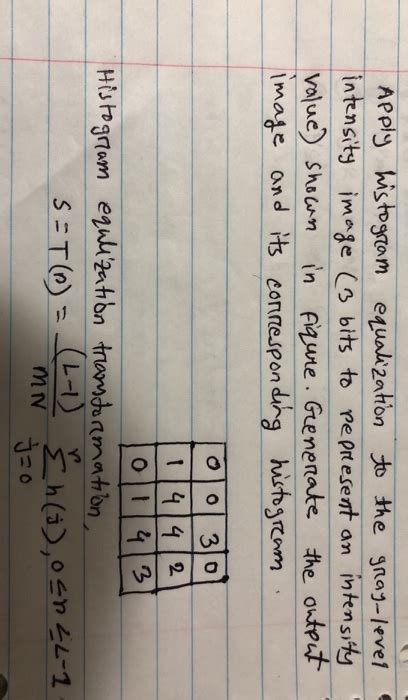 Apply histogram equalization to the gray-level
intensity image (3 bits to represent an intensity
value) shown in figure. Generate the output
image and its corresponding histogram.
0 0 3 0
1 4 4 2
0 1 4 3
Histogram equlization transformation,
S = T(r) = (L-1)/MN Σ_{j=0}^{r} h(j), 0 ≤ r ≤ L-1